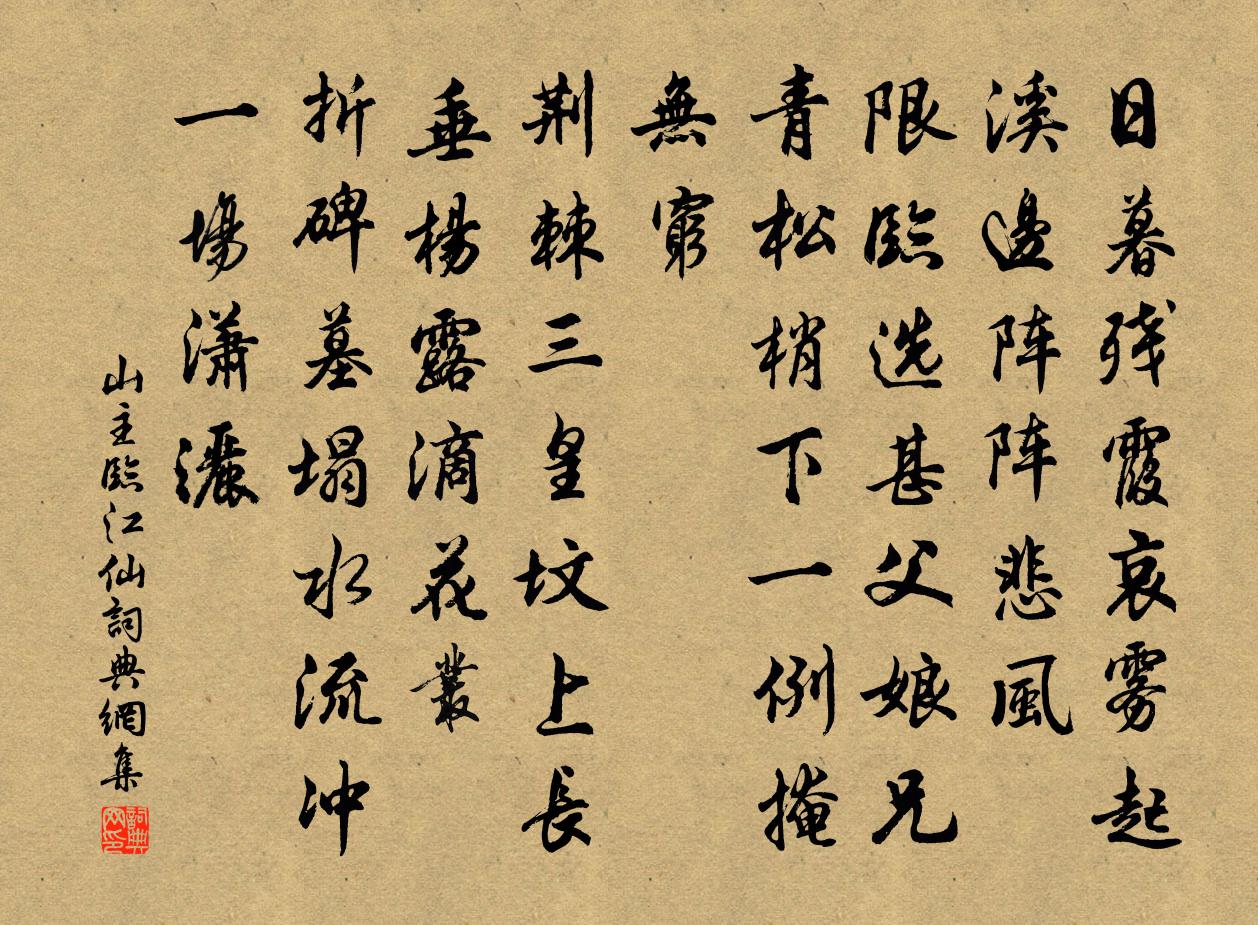 日暮残霞哀雾起
溪邊阵阵悲風
限臨选甚父娘兄
青松梢下一例掩
無窮
荆棘三皇坟上長
垂楊露滴花叢
折碑墓塌水流冲
一場潇灑
山主臨江仙詞典網集
詞典网印